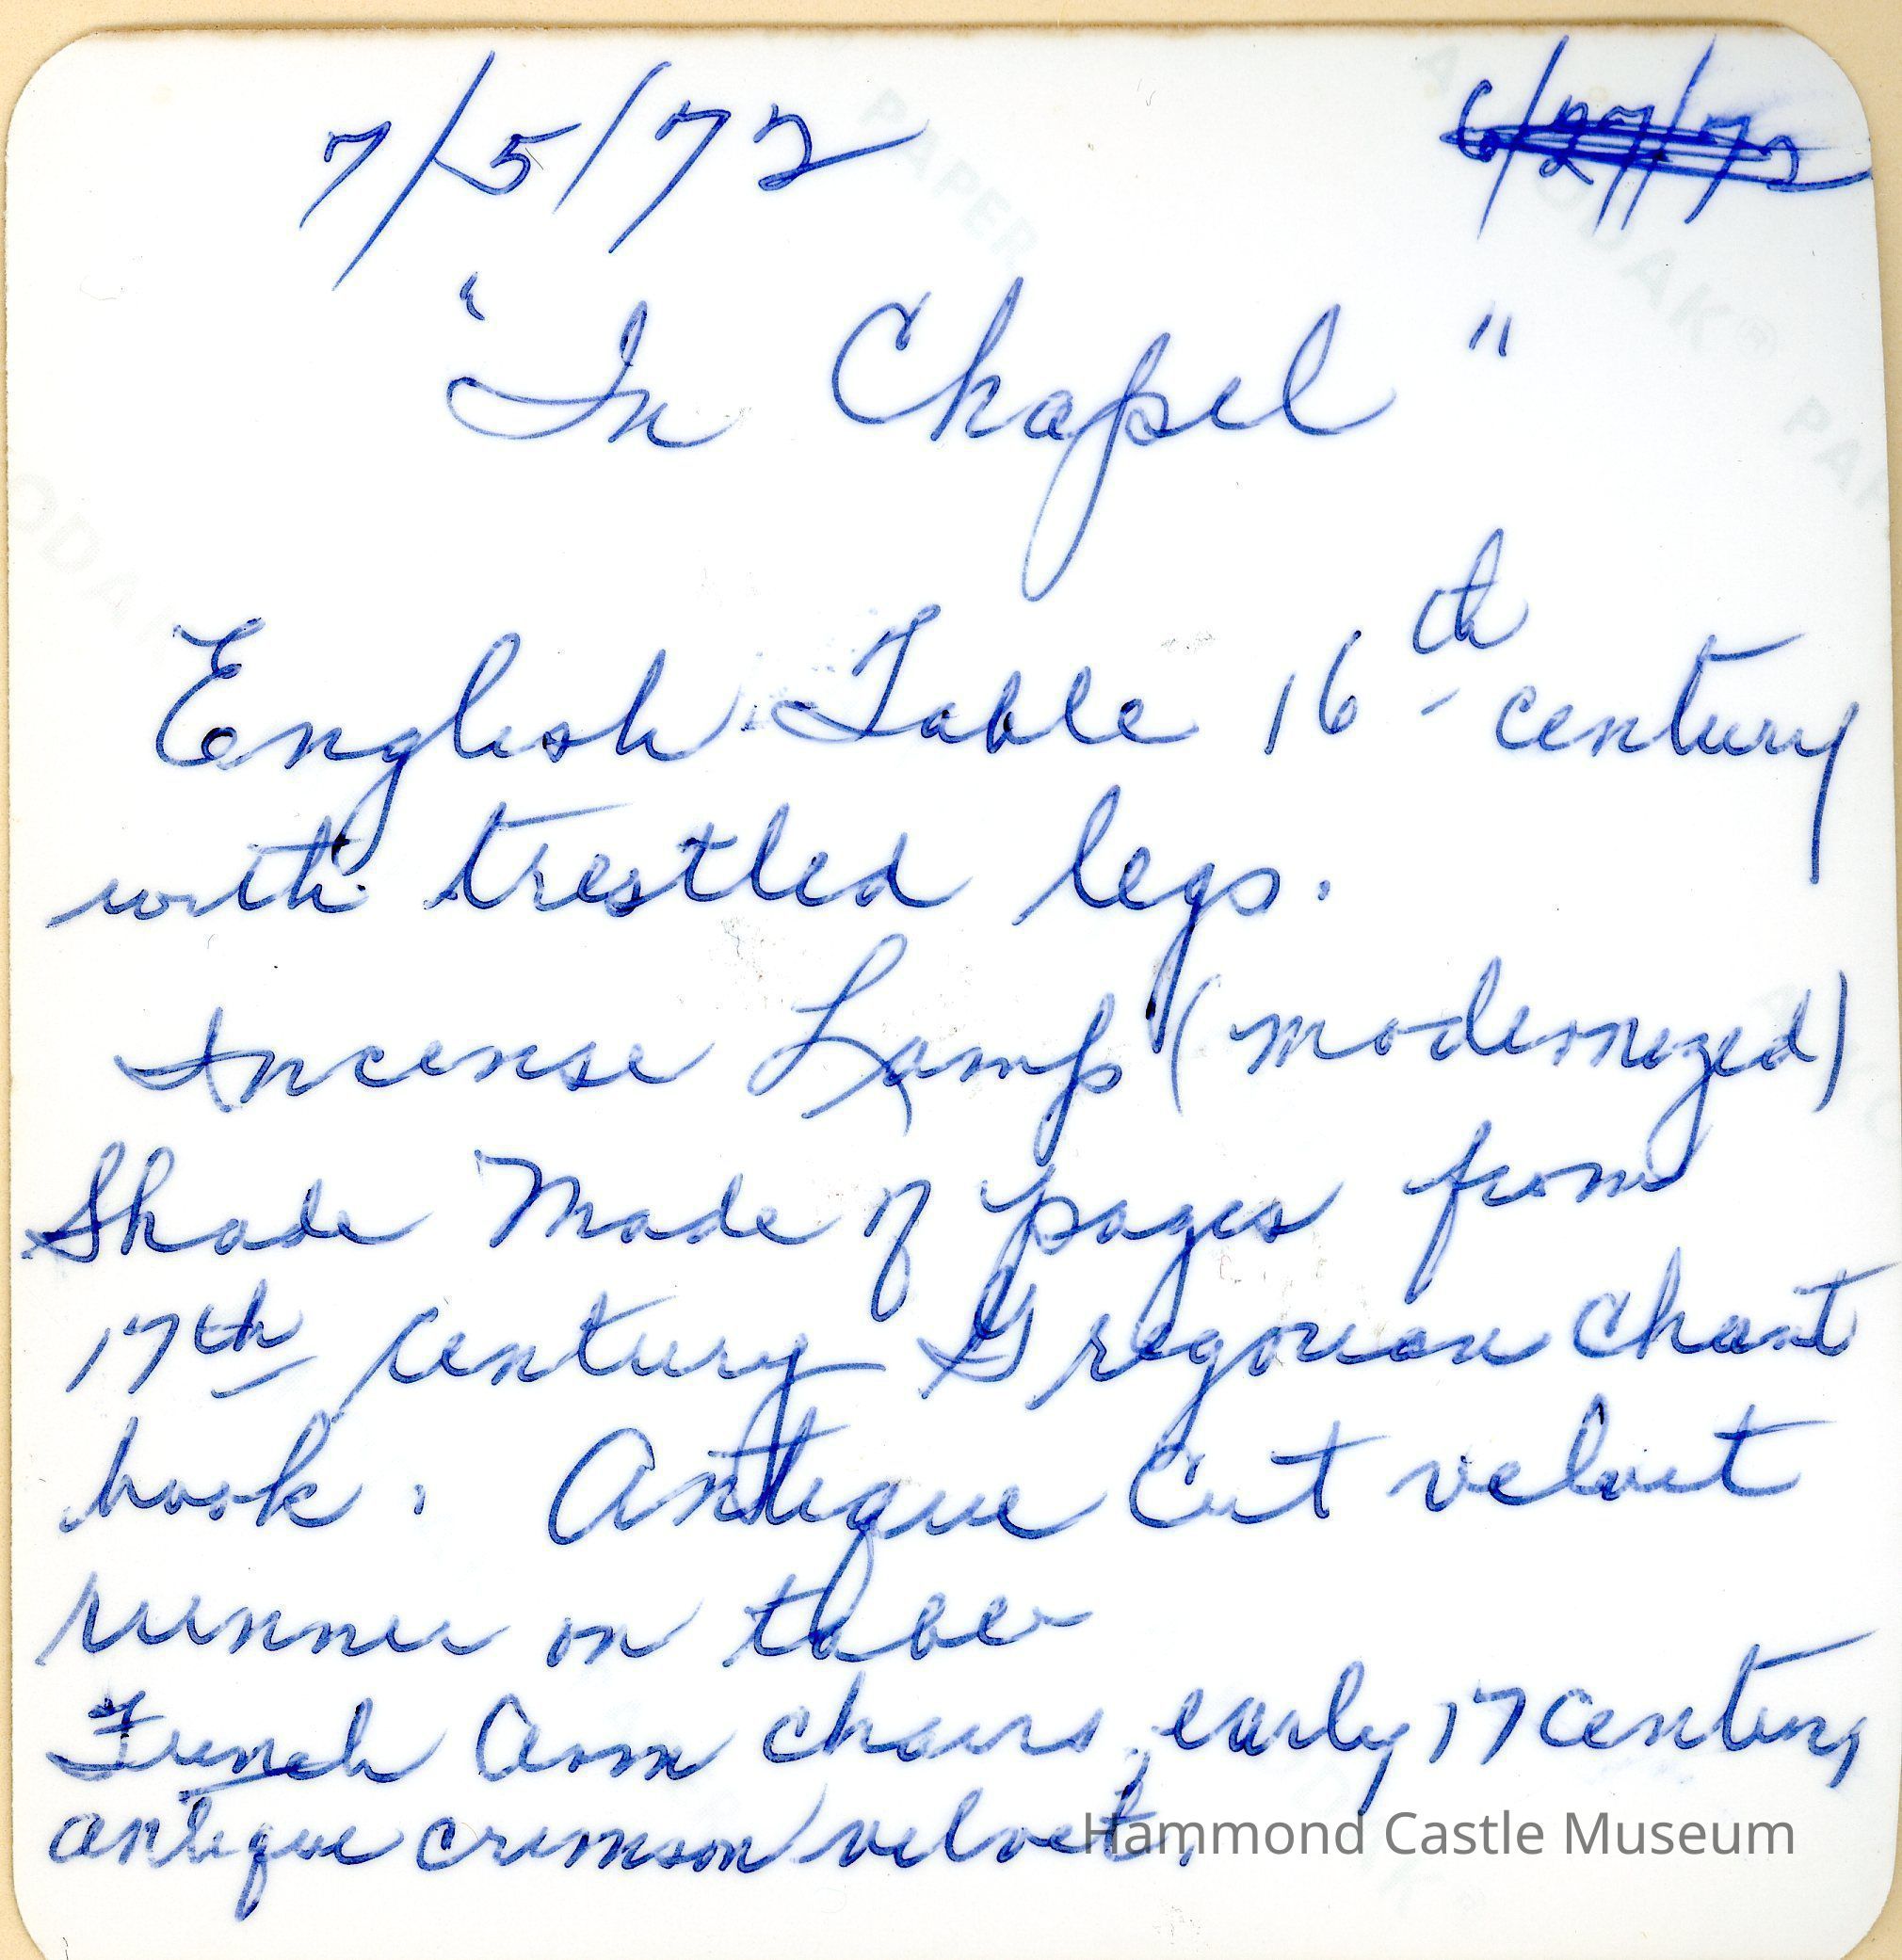 7/5/72 6/27/72
"In Chapel"
English Table 16th century
with trestled legs.
Incense Lamp (modernized)
Shade Made of pages from
17th century Gregorian Chant
book. Antique Cut velvet
runner on table
French Arm chairs, early 17 century
antique crimson velvet.
Hammond Castle Museum
KODAK PAPER